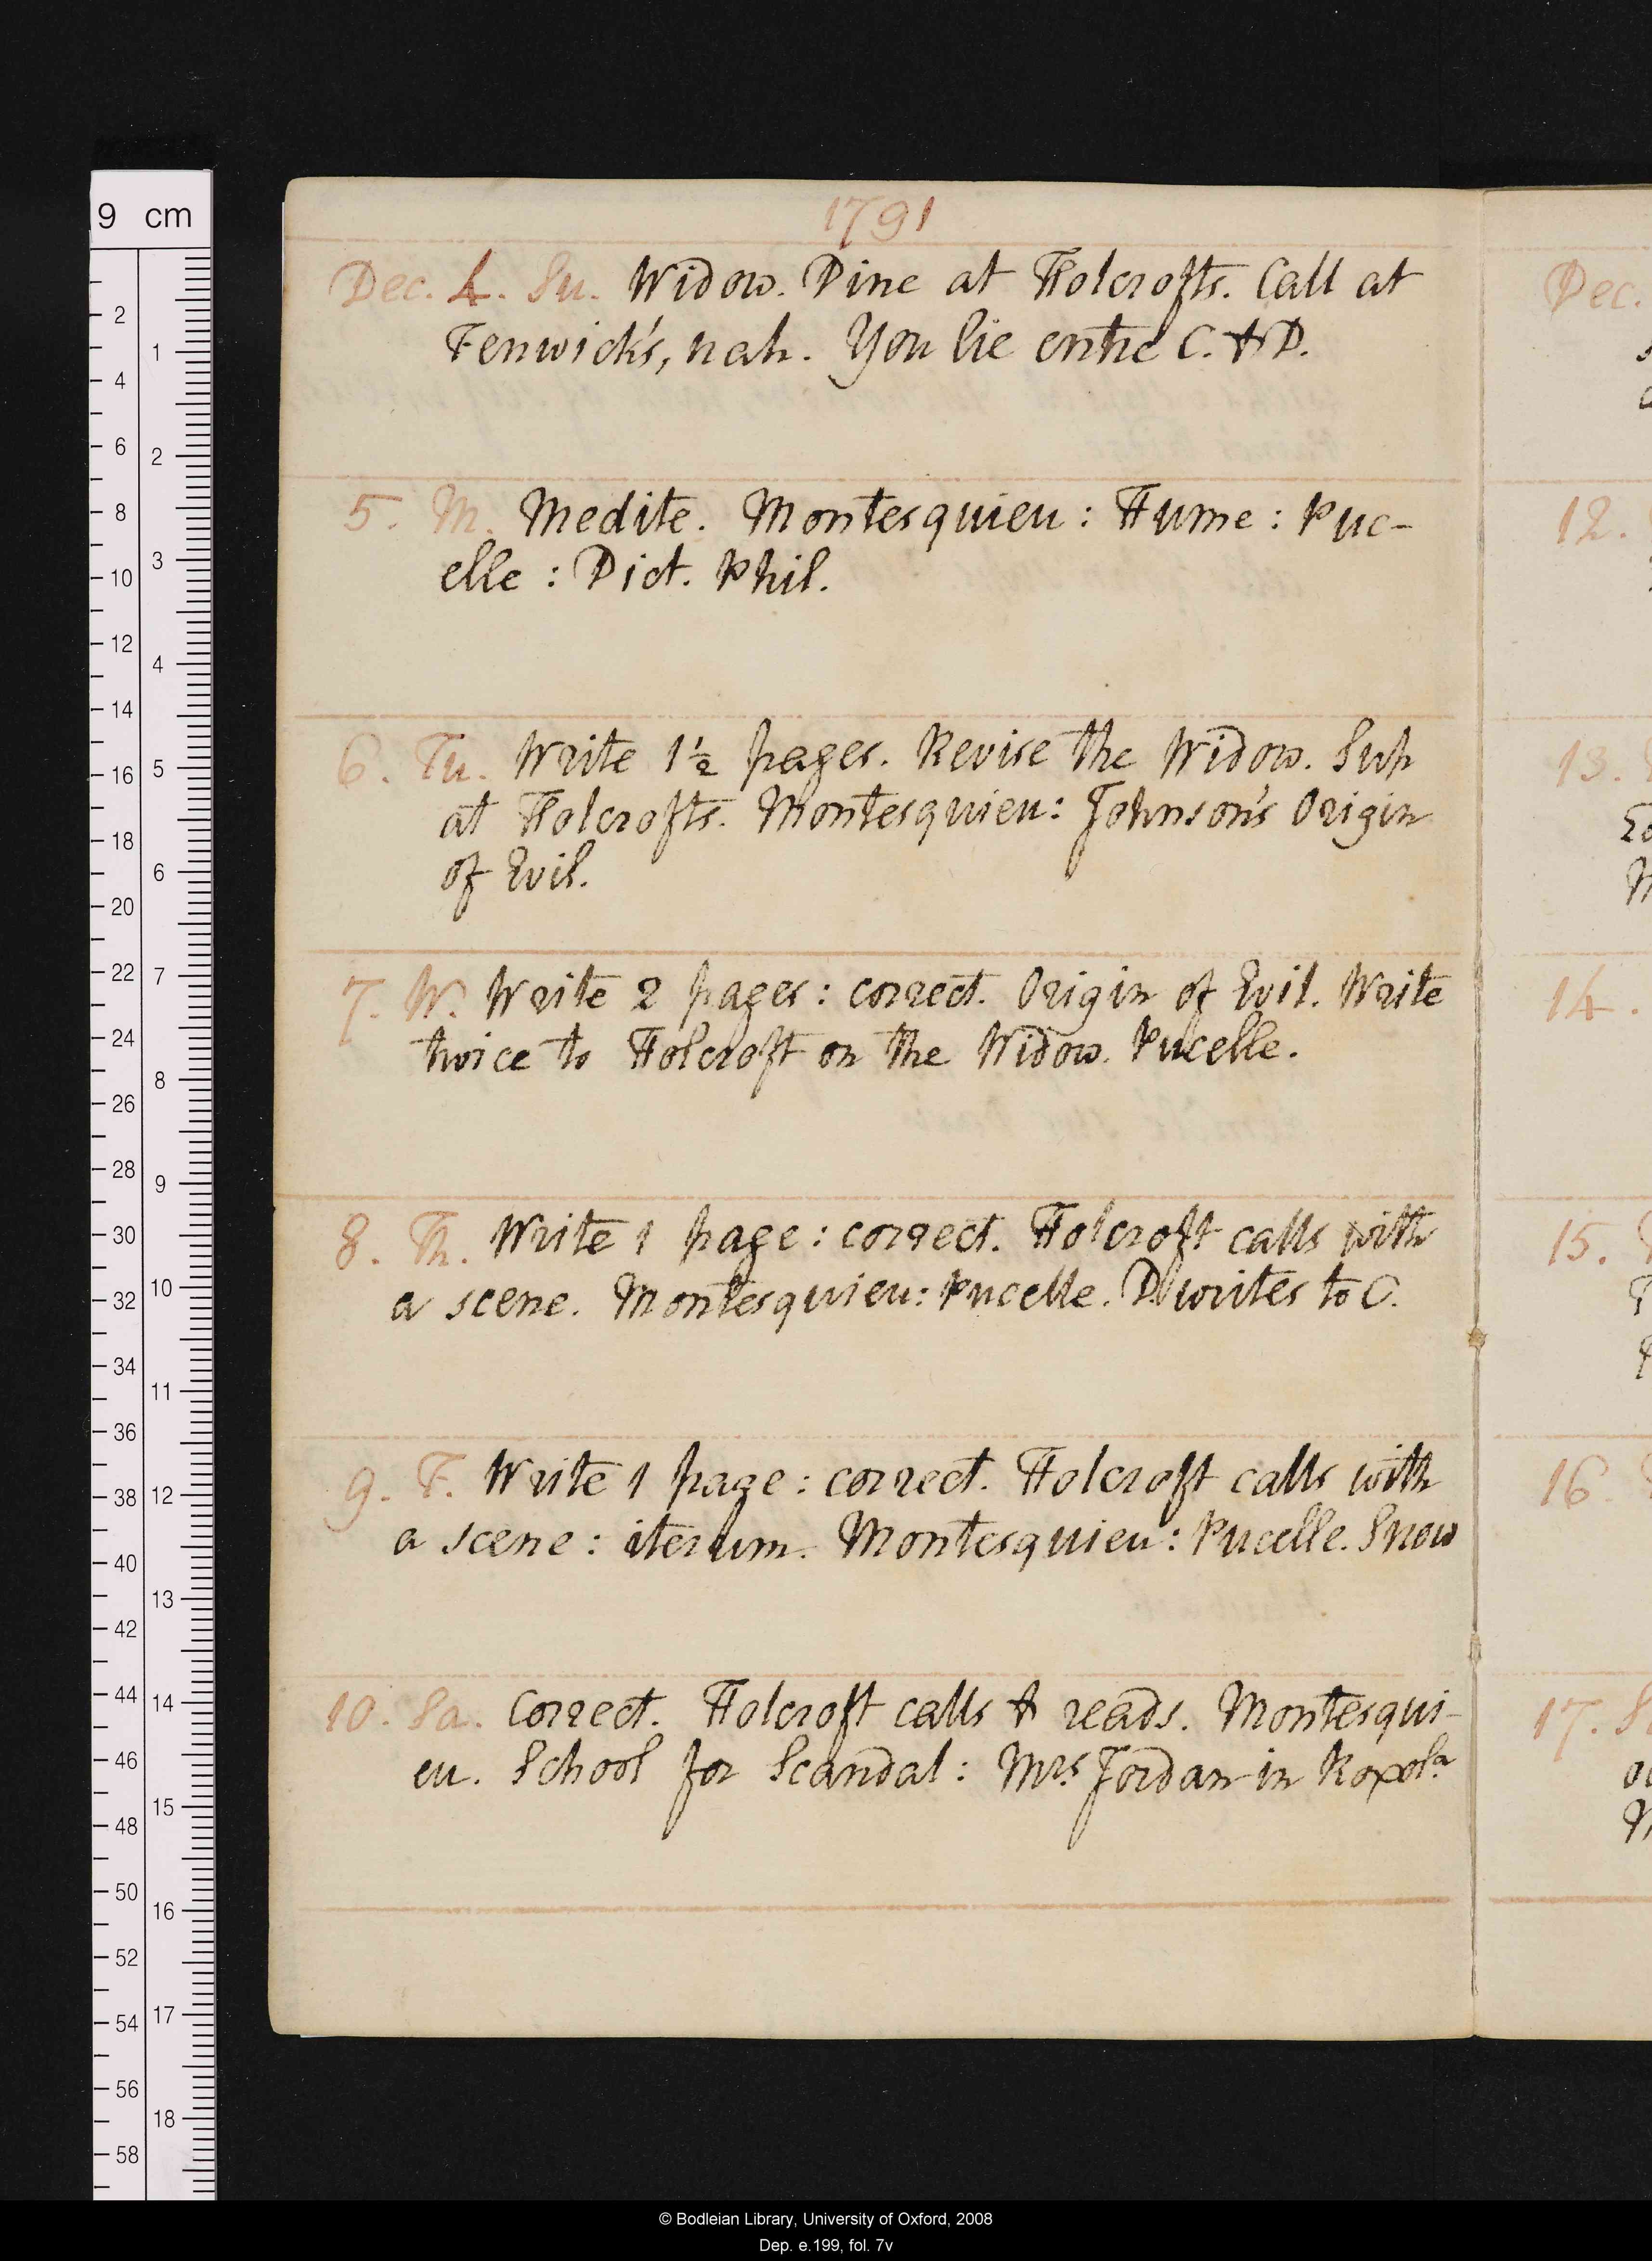 1791
Dec. 4. Su. Widow. Dine at Holcrofts. Call at
Fenwick's, nah. You lie entre C. & D.
5. M. Medite. Montesquieu : Hume : Puc-
elle : Dict. Phil.
6. Tu. Write 1½ pages. Revise the Widow. Sup
at Holcrofts. Montesquieu: Johnson's Origin
of Evil.
7. W. Write 2 pages : correct. Origin of Evil. Write
twice to Holcroft on the Widow. Pucelle.
8. Th. Write 1 page : correct. Holcroft calls with
a scene. Montesquieu: Pucelle. D. writes to C.
9. F. Write 1 page : correct. Holcroft calls with
a scene : iterum. Montesquieu : Pucelle. Snow
10. Sa. Correct. Holcroft calls & reads. Montesqui-
eu. School for Scandal : Mrs. Jordan in Roxola
Dec.
12.
13.
14.
15.
16
17. S
9 cm
2
4
6
8
10
12
14
16
18
20
22
24
26
28
30
32
34
36
38
40
42
44
46
48
50
52
54
56
58
1
2
3
4
5
6
7
8
9
10
11
12
13
14
15
16
17
18
© Bodleian Library, University of Oxford, 2008
Dep. e.199, fol. 7v